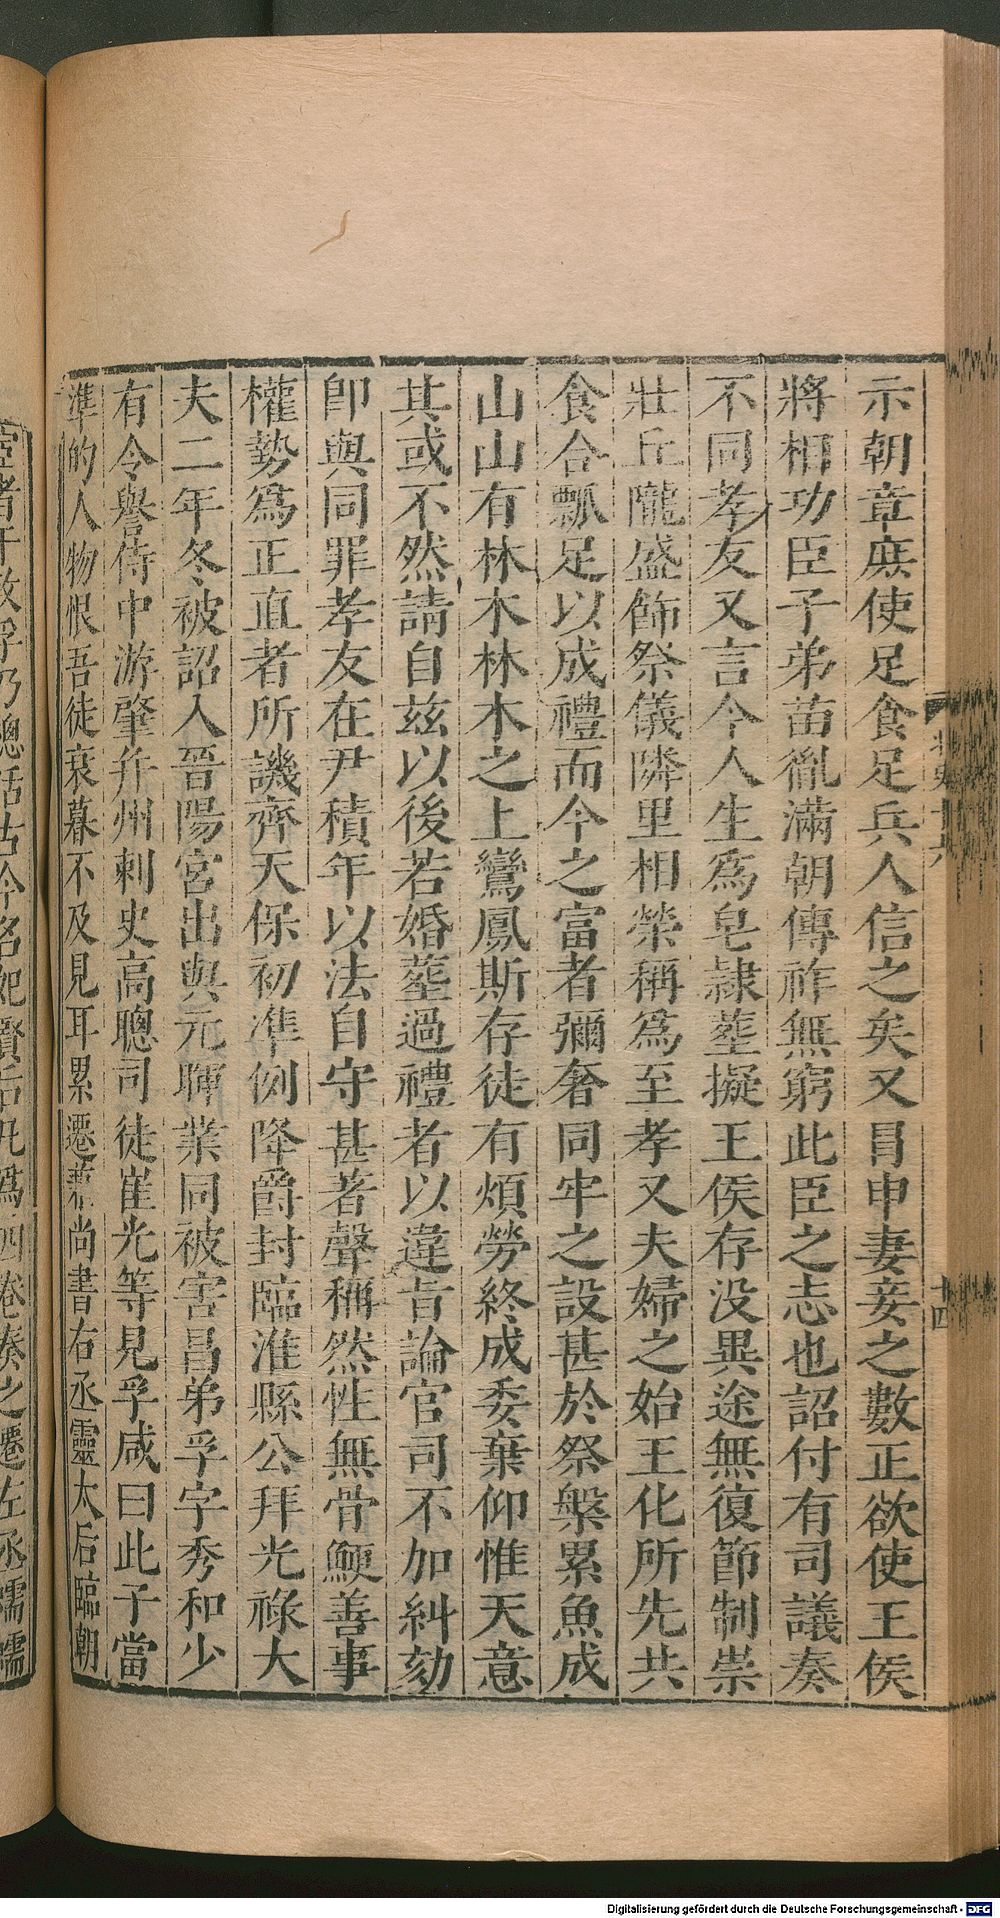 示朝章庶使足食足兵人信之矣又冒申妻妾之數正欲使王侯
將相功臣子弟苗胤滿朝傳祚無窮此臣之志也詔付有司議奏
不同孝友又言今人生爲皂隷塟擬王侯存没異途無復節制崇
壯丘隴盛飾祭儀隣里相榮稱爲至孝又夫婦之始王化所先共
食合瓢足以成禮而今之富者彌奢同牢之設甚於祭槃累魚成
山山有林木林木之上鸞鳳斯存徒有煩勞終成委棄仰惟天意
其或不然請自兹以後若婚塟過禮者以違旨論官司不加糾劾
卽與同罪孝友在尹積年以法自守甚著聲稱然性無骨鯁善事
權勢爲正直者所譏齊天保初准例降爵封臨淮縣公拜光祿大
夫二年冬被詔入晉陽宮出與元暉業同被害昌弟孚字秀和少
有令譽侍中游肇并州刺史高聰司徒崔光等見孚咸曰此子當
準的人物恨吾徒衰暮不及見耳累遷兼尚書右丞靈太后臨朝
北史十六
十四
宦者干政孚乃總括古今名妃賢后凡爲四卷奏之遷左丞蠕蠕
Digitalisierung gefördert durch die Deutsche Forschungsgemeinschaft - DFG